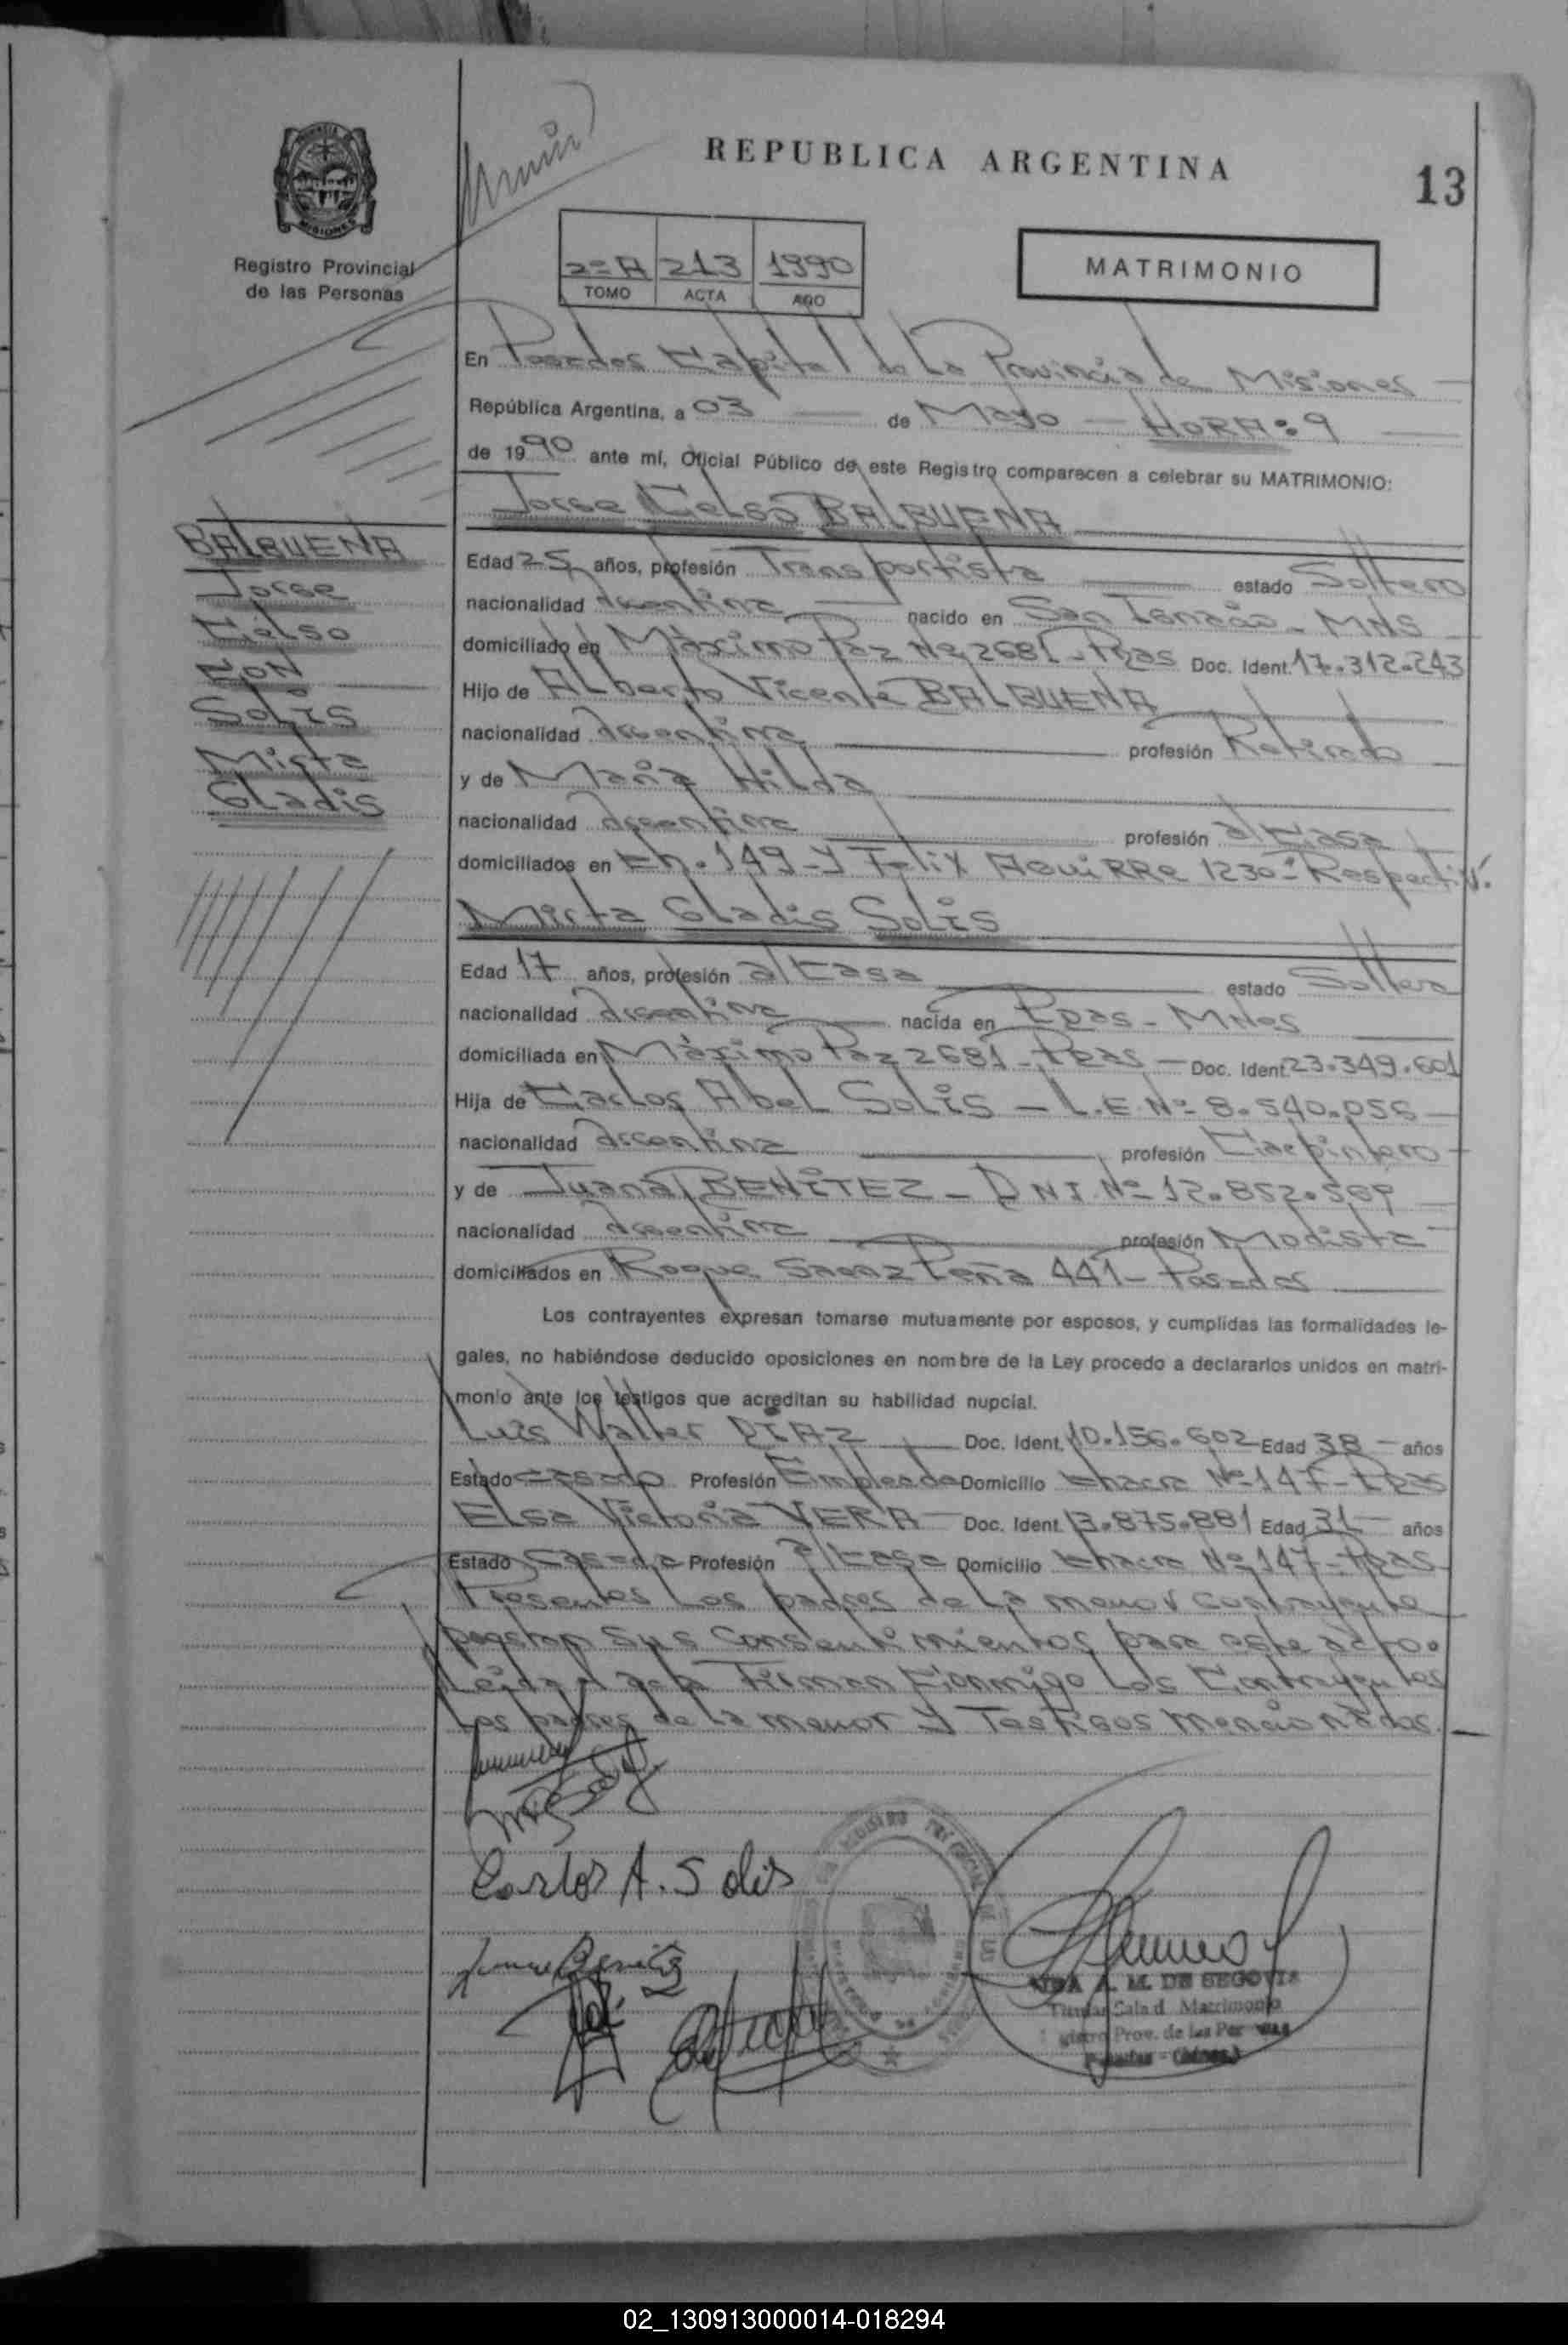 REPUBLICA ARGENTINA
13
PROVINCIA DE
MISIONES
Registro Provincial
de las Personas
2º A 213 1990
TOMO ACTA AÑO
MATRIMONIO
En Posadas Capital de La Provincia de Misiones
República Argentina, a 03 de Mayo HORA: 9
de 1990 ante mí, Oficial Público de este Registro comparecen a celebrar su MATRIMONIO:
Jorge Celso BALBUENA
BALBUENA
Jorge
Celso
CON
SOLIS
Mirta
Gladis
Edad 25 años, profesión Transportista estado Soltero
nacionalidad argentina nacido en San Ignacio - MNS
domiciliado en Máximo Paz Nº 2681 - Pdas Doc. Ident. 17.312.243
Hijo de Alberto Vicente BALBUENA
nacionalidad argentina profesión Retirado
y de María Hilda
nacionalidad argentina profesión a/casa
domiciliados en Ch. 149 - y Felix Aguirre 1230 - Respectiv.
Mirta Gladis Solis
Edad 17 años, profesión a/casa estado Soltera
nacionalidad argentina nacida en Pdas - MNes
domiciliada en Máximo Paz 2681 - Pdas - Doc. Ident. 23.349.601
Hija de Carlos Abel Solis - L.E. Nº 8.540.056
nacionalidad argentina profesión Carpintero
y de Juana BENITEZ - DNI Nº 12.852.569
nacionalidad argentina profesión Modista
domiciliados en Roque Saenz Peña 441 - Posadas
Los contrayentes expresan tomarse mutuamente por esposos, y cumplidas las formalidades le-
gales, no habiéndose deducido oposiciones en nombre de la Ley procedo a declararlos unidos en matri-
monio ante los testigos que acreditan su habilidad nupcial.
Luis Walter DIAZ Doc. Ident. 10.156.602 Edad 38 años
Estado casado Profesión Empleado Domicilio chacra Nº 147 - Pdas
Elsa Victoria VERA Doc. Ident. 13.875.881 Edad 31 años
Estado Casada Profesión a/casa Domicilio chacra Nº 147 - Pdas
Presentes Los padres de La menor contrayente
prestan sus consentimientos para este acto.
Leida el acta Firman Conmigo Los Contrayentes
Los padres de la menor y Testigos mencionados.
Carlos A. Solis
Juana Benitez
A. M. DE SEGOVIA
Titular Sala d Matrimonio
Prov. de las Personas
Posadas - (Mnes.)
02_130913000014-018294